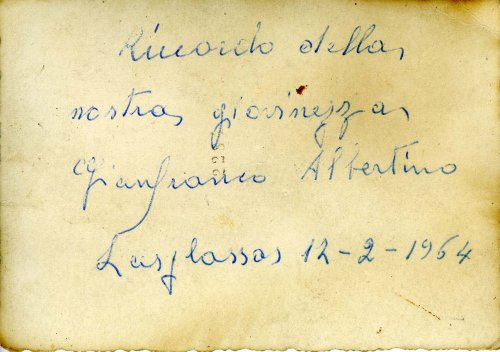 Ricordo della
nostra giovinezza
Gianfranco Albertino
Lasplassas 12-2-1964